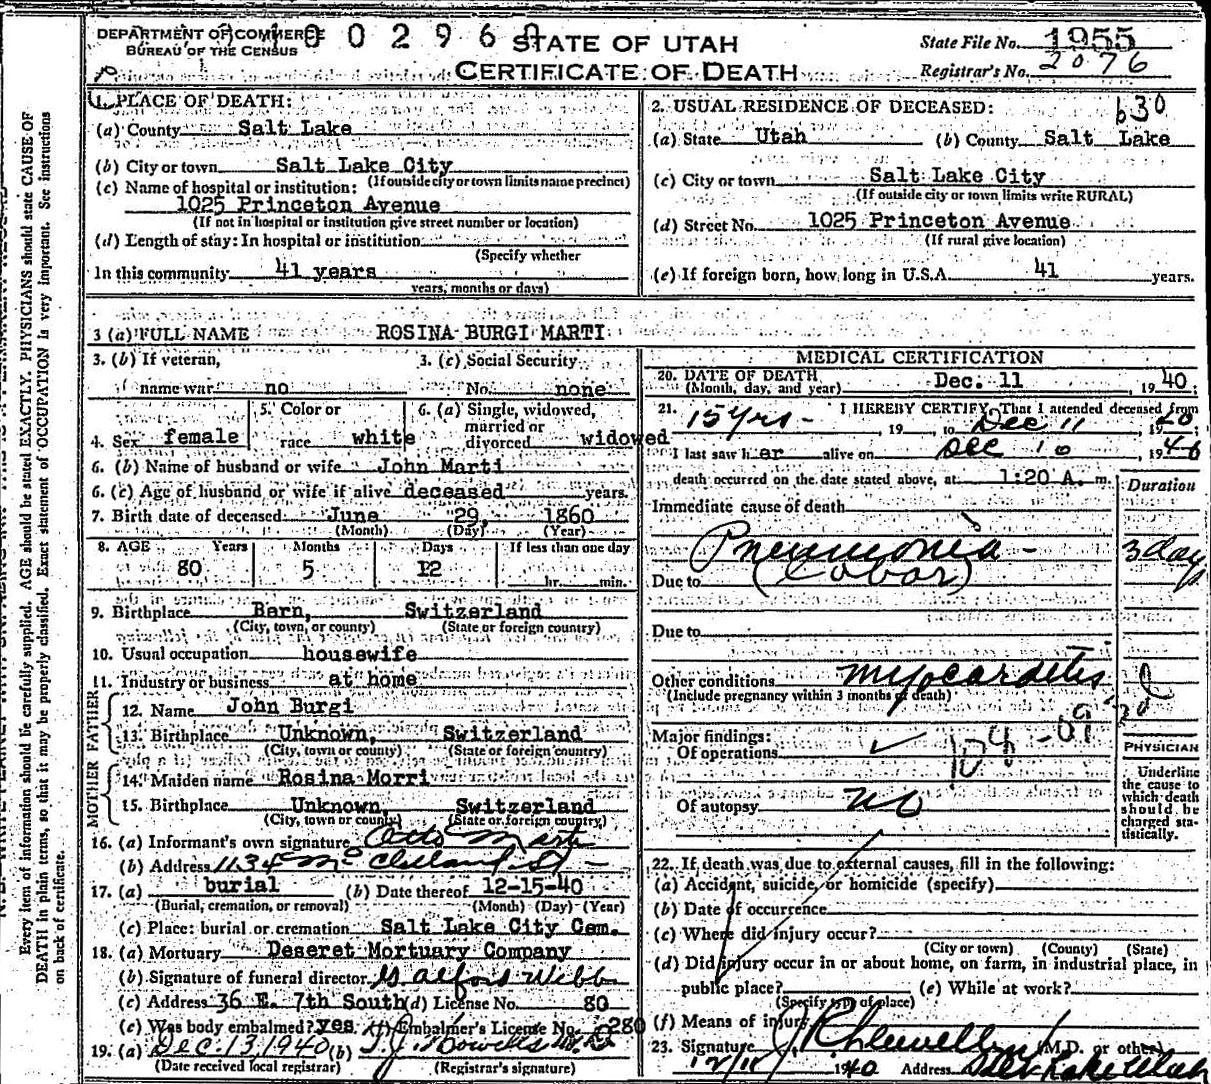 DEPARTMENT OF COMMERCE
BUREAU OF THE CENSUS
0 0 2 9 6 0
STATE OF UTAH
CERTIFICATE OF DEATH
State File No. 1955
Registrar's No. 2076
1. PLACE OF DEATH:
(a) County Salt Lake
(b) City or town Salt Lake City
(If outside city or town limits name precinct)
(c) Name of hospital or institution:
1025 Princeton Avenue
(If not in hospital or institution give street number or location)
(d) Length of stay: In hospital or institution
(Specify whether
In this community 41 years
years, months or days)
2. USUAL RESIDENCE OF DECEASED: 630
(a) State Utah (b) County Salt Lake
(c) City or town Salt Lake City
(If outside city or town limits write RURAL)
(d) Street No. 1025 Princeton Avenue
(If rural give location)
(e) If foreign born, how long in U.S.A. 41 years.
3 (a) FULL NAME ROSINA BURGI MARTI
3. (b) If veteran,
name war no
3. (c) Social Security
No. none
4. Sex female
5. Color or
race white
6. (a) Single, widowed,
married or
divorced widowed
6. (b) Name of husband or wife John Marti
6. (c) Age of husband or wife if alive deceased years.
7. Birth date of deceased June 29, 1860
(Month) (Day) (Year)
8. AGE Years Months Days If less than one day
80 5 12 hr. min.
9. Birthplace Bern, Switzerland
(City, town, or county) (State or foreign country)
10. Usual occupation housewife
11. Industry or business at home
FATHER
12. Name John Burgi
13. Birthplace Unknown, Switzerland
(City, town or county) (State or foreign country)
MOTHER
14. Maiden name Rosina Morri
15. Birthplace Unknown, Switzerland
(City, town or county) (State or foreign country)
16. (a) Informant's own signature Otto Marti
(b) Address 1134 McClelland St
17. (a) burial (b) Date thereof 12-15-40
(Burial, cremation, or removal) (Month) (Day) (Year)
(c) Place: burial or cremation Salt Lake City Cem.
18. (a) Mortuary Deseret Mortuary Company
(b) Signature of funeral director G Alford Webb
(c) Address 36 E. 7th South (d) License No. 80
(e) Was body embalmed? yes. (f) Embalmer's License No. 280
19. (a) Dec. 13, 1940 (b) T.J. Howells M.D.
(Date received local registrar) (Registrar's signature)
MEDICAL CERTIFICATION
20. DATE OF DEATH
(Month, day, and year) Dec. 11, 1940;
21. I HEREBY CERTIFY, That I attended deceased from
15 yrs - , 19 , to Dec 11, 1940;
I last saw her alive on Dec 10, 1940
death occurred on the date stated above, at 1:20 A. m.
Duration
Immediate cause of death
Pneumonia - 3 days
Due to (Lobar)
Due to
Other conditions Myocarditis
(Include pregnancy within 3 months of death)
Major findings:
Of operations
Of autopsy no
PHYSICIAN
Underline
the cause to
which death
should be
charged sta-
tistically.
22. If death was due to external causes, fill in the following:
(a) Accident, suicide, or homicide (specify)
(b) Date of occurrence
(c) Where did injury occur?
(City or town) (County) (State)
(d) Did injury occur in or about home, on farm, in industrial place, in
public place? (e) While at work?
(Specify type of place)
(f) Means of injury
23. Signature J R Llewellyn (M.D. or other)
12/11 1940 Address Salt Lake Utah
Every item of information should be carefully supplied. AGE should be stated EXACTLY. PHYSICIANS should state CAUSE OF
DEATH in plain terms, so that it may be properly classified. Exact statement of OCCUPATION is very important. See instructions
on back of certificate.